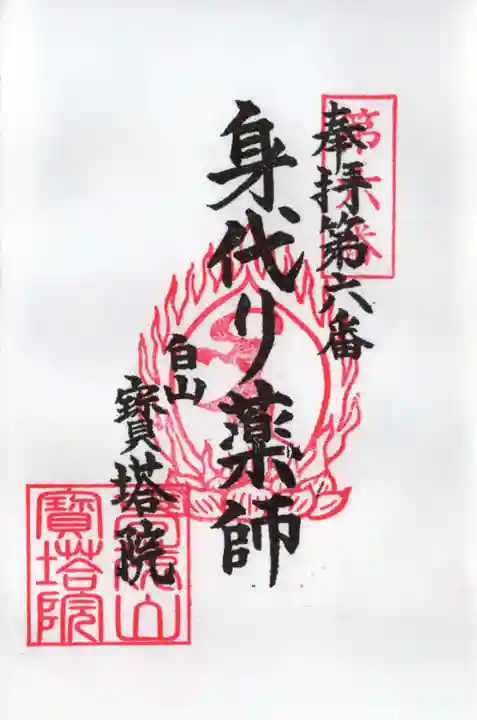 奉拝第六番
第六番
身代り薬師
白山
寳塔院
寳塔院